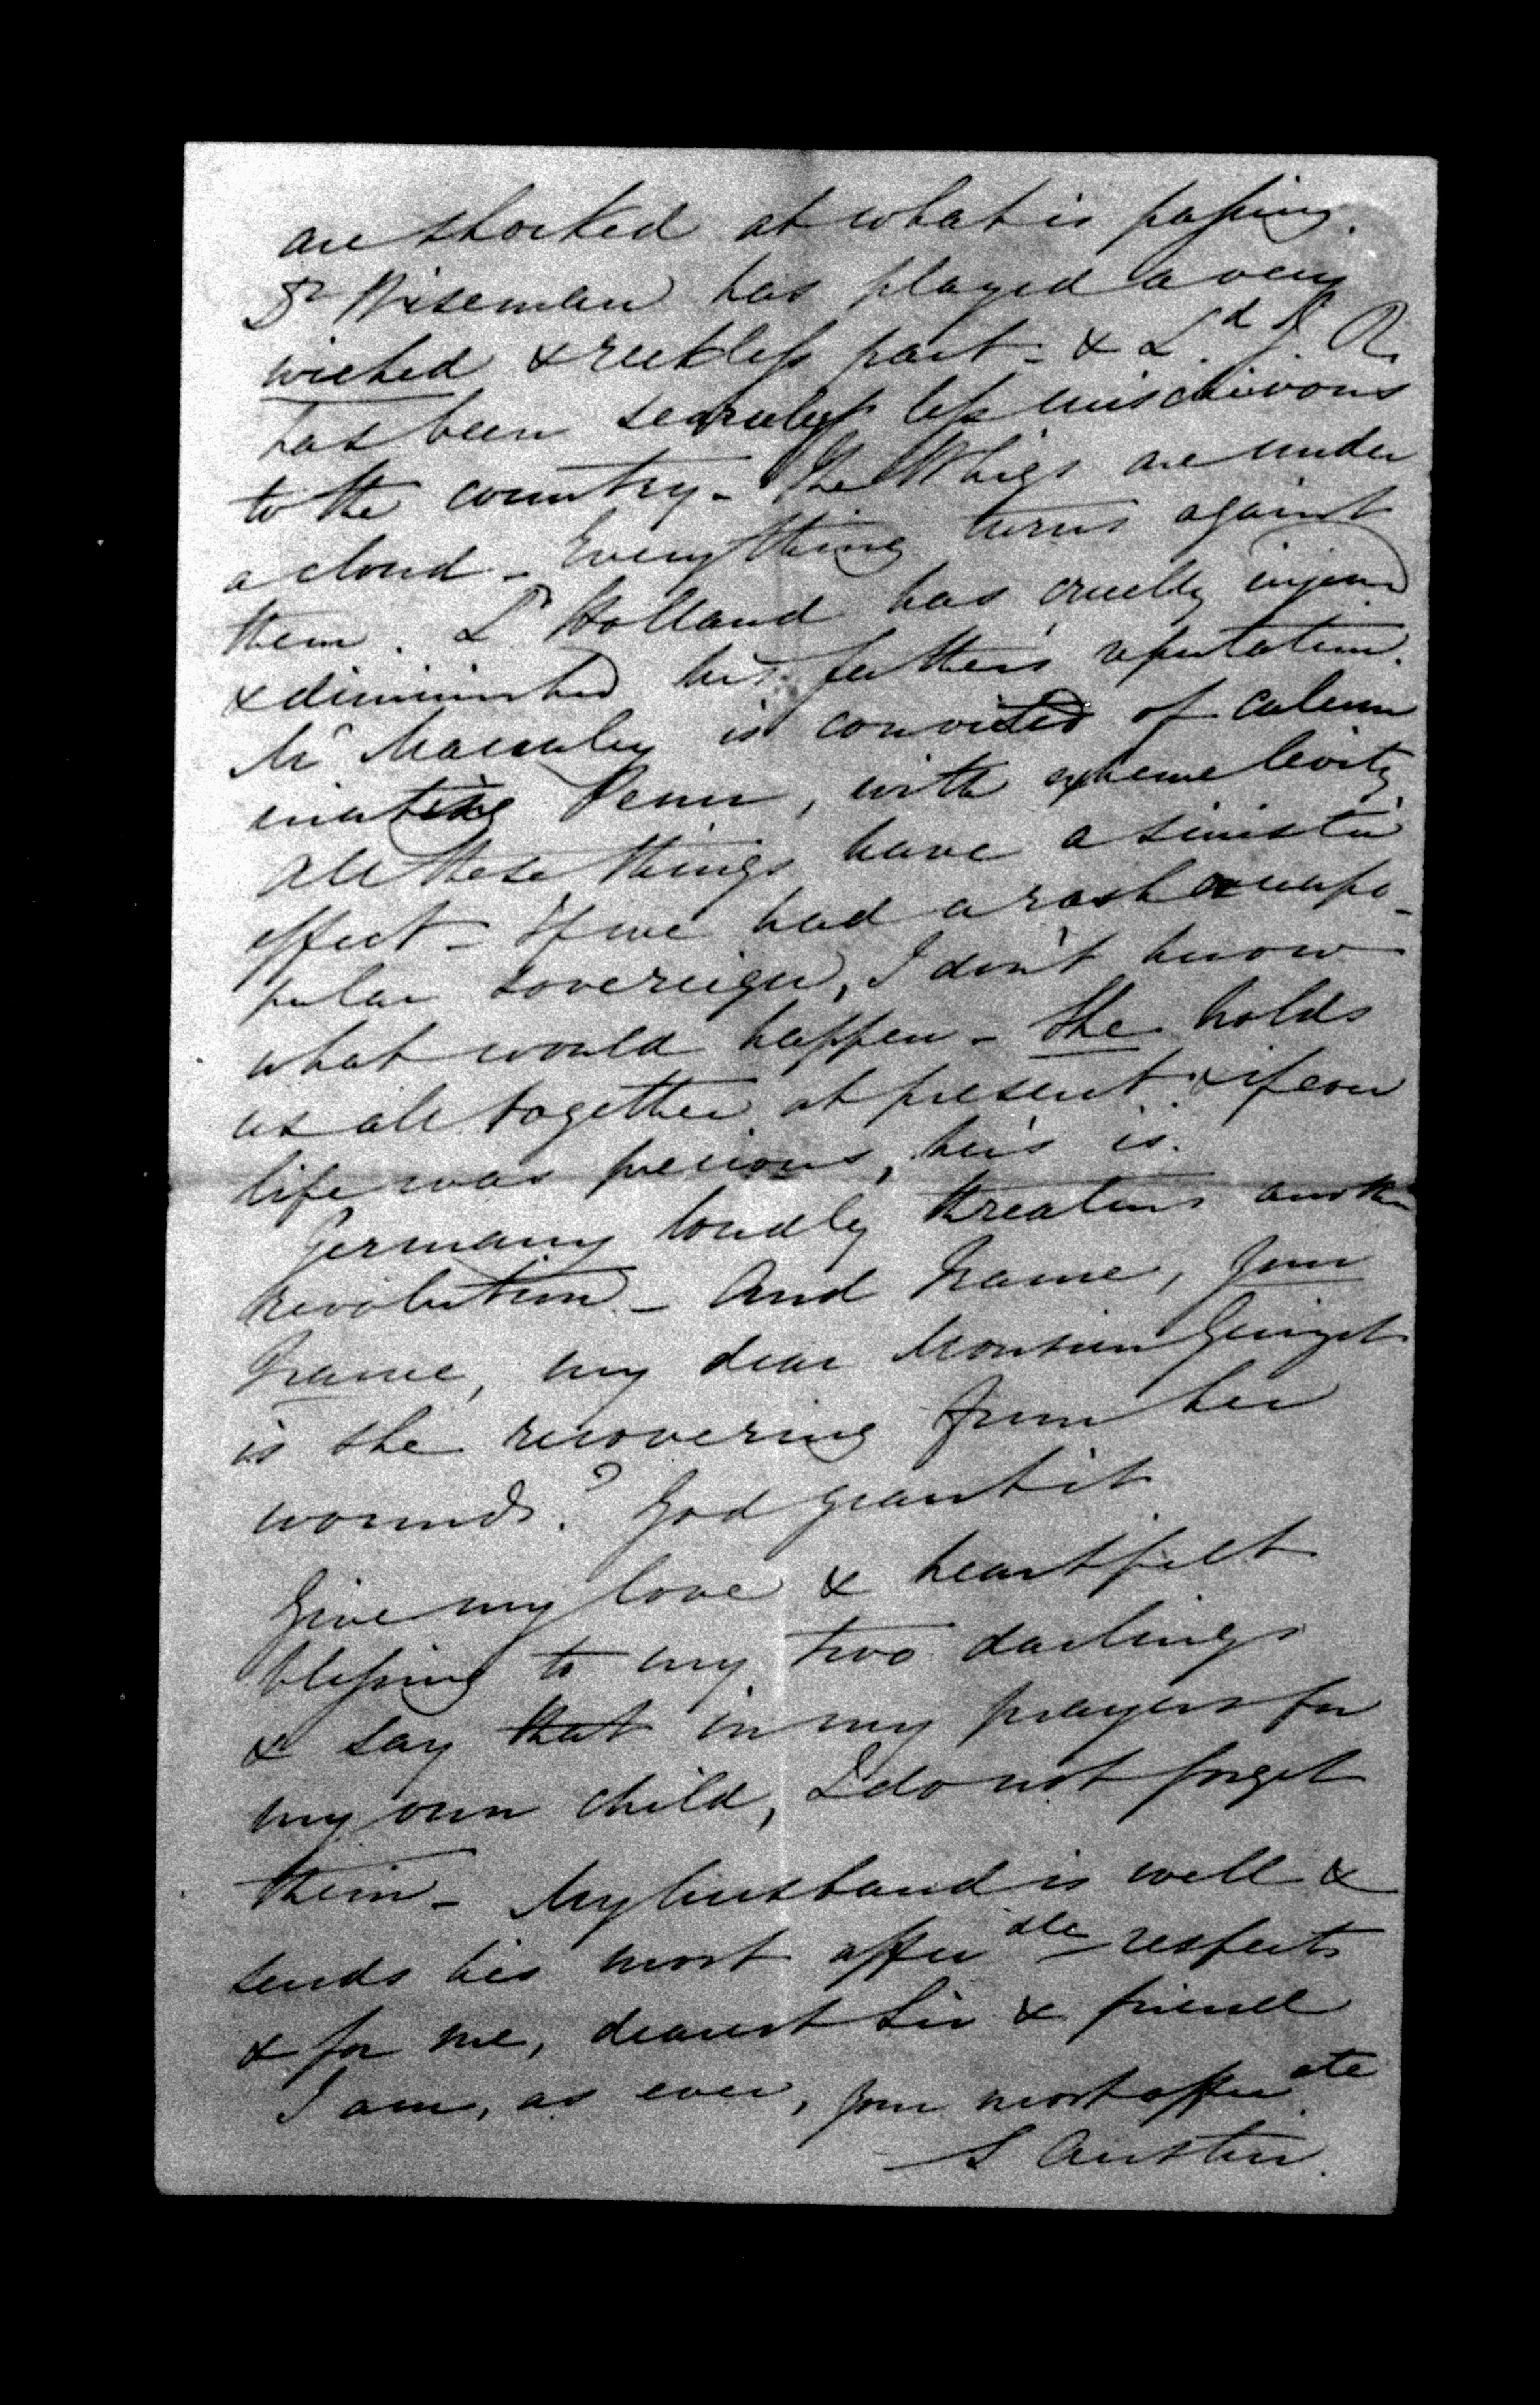 are shocked at what is passing.
Dr Wiseman has played a very
wicked & reckless part - & Ld J. R.
has been scarcely less mischievous
to the country - The Whigs are under
a cloud - Everything turns against
them. Ld Holland has cruelly injured
& diminished his father's reputation.
Mr Macaulay is convicted of calum
niating Penn, with extreme levity
All these things have a sinister
effect - If we had a rash or unpo-
pular sovereign, I don't know
what would happen - She holds
us all together at present & if ever
life was precious, her's is.
Germany loudly threatens another
revolution - And France, your
France, my dear Monsieur Guizot
is she recovering from her
wounds? God grant it
Give my love & heartfelt
blessing to my two darlings
& say that in my prayers for
my own child, I do not forget
them - My husband is well &
sends his most affecate respects
& for me, dearest Sir & friend
I am, as ever, your most affecate
S Austin.